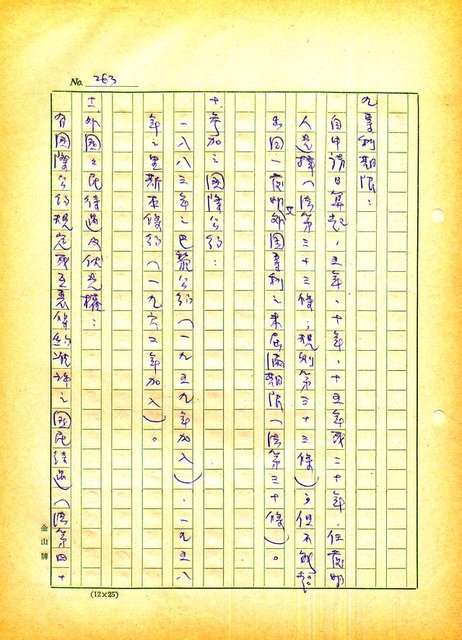 No. 263
九專利期限：
自申請日算起，五年、十年、十五年或二十年，任發明
人選擇（法第三十三條，規則第三十三條），但不能超
出同一發明外國專利之未屆滿期限（法第三十條）。
十參加之國際公約：
一八八三年之巴黎公約（一九五九年加入）。一九五八
年之里斯本條約（一九六二年加入）。
十一外國之民待遇及優先權：
有國際公約規定或互惠條約准許之國民待遇（法第四十
金山牌
(12×25)